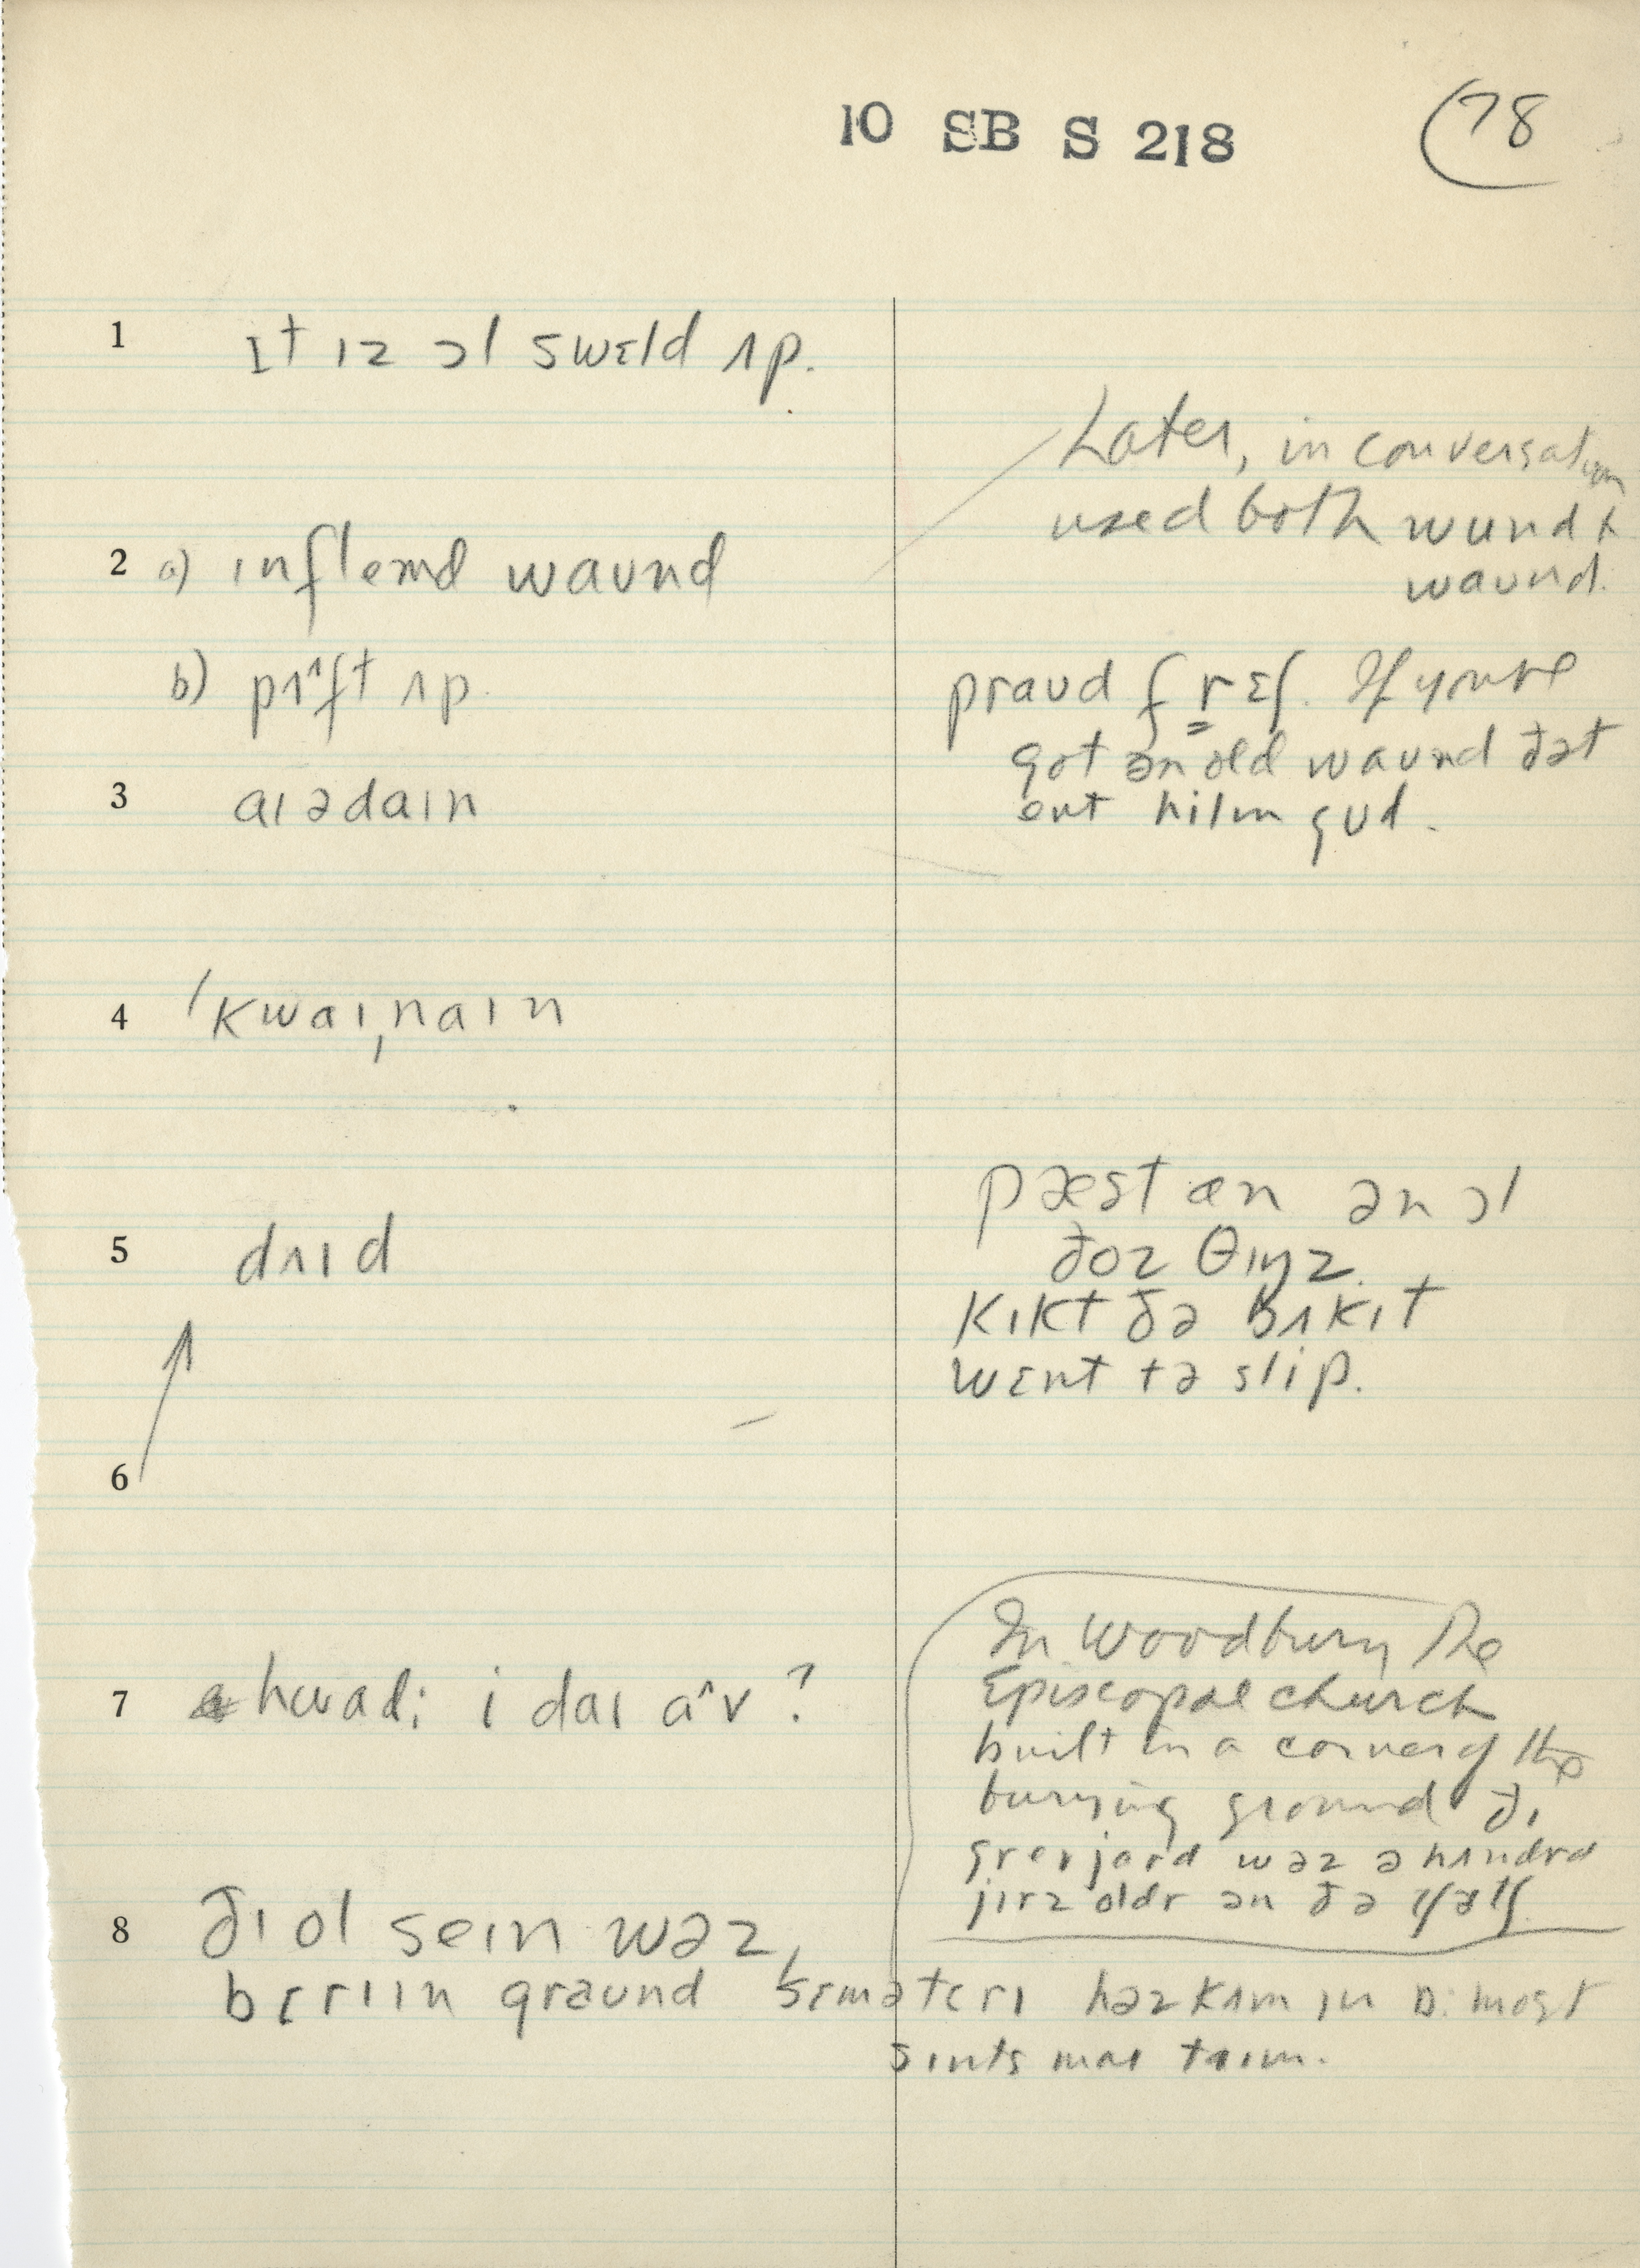 10 SB S 218
78
1 ɪt ɪz ɔl swɛld ʌp.
Later, in conversation
used both wund &
waʊnd.
2 a) ɪnflemd waʊnd
b) pʌ^ft ʌp.
praʊd f rɛʃ. If you've
got ən old waʊnd ðət
ent hilɪn gʊd.
3 aɪədaɪn
4 ˈkwaɪˌnaɪn
5 dʌɪd
pæst æn ən ɔl
ðoz θɪŋz.
kɪkt ðə bʌkɪt
wɛnt tə slip.
6
7 hwadɪ i daɪ a^v?
In Woodbury the
Episcopal church
built in a corner of the
burying ground ðɪ
greɪjard wəz ə hʌndrd
jɪrz oldr ən ðə
8 ðɪ ol seɪn wəz,
bɛrɪɪn graʊnd sɛmətɛrɪ həz kʌm ɪn most
sɪnts maɪ taɪm.